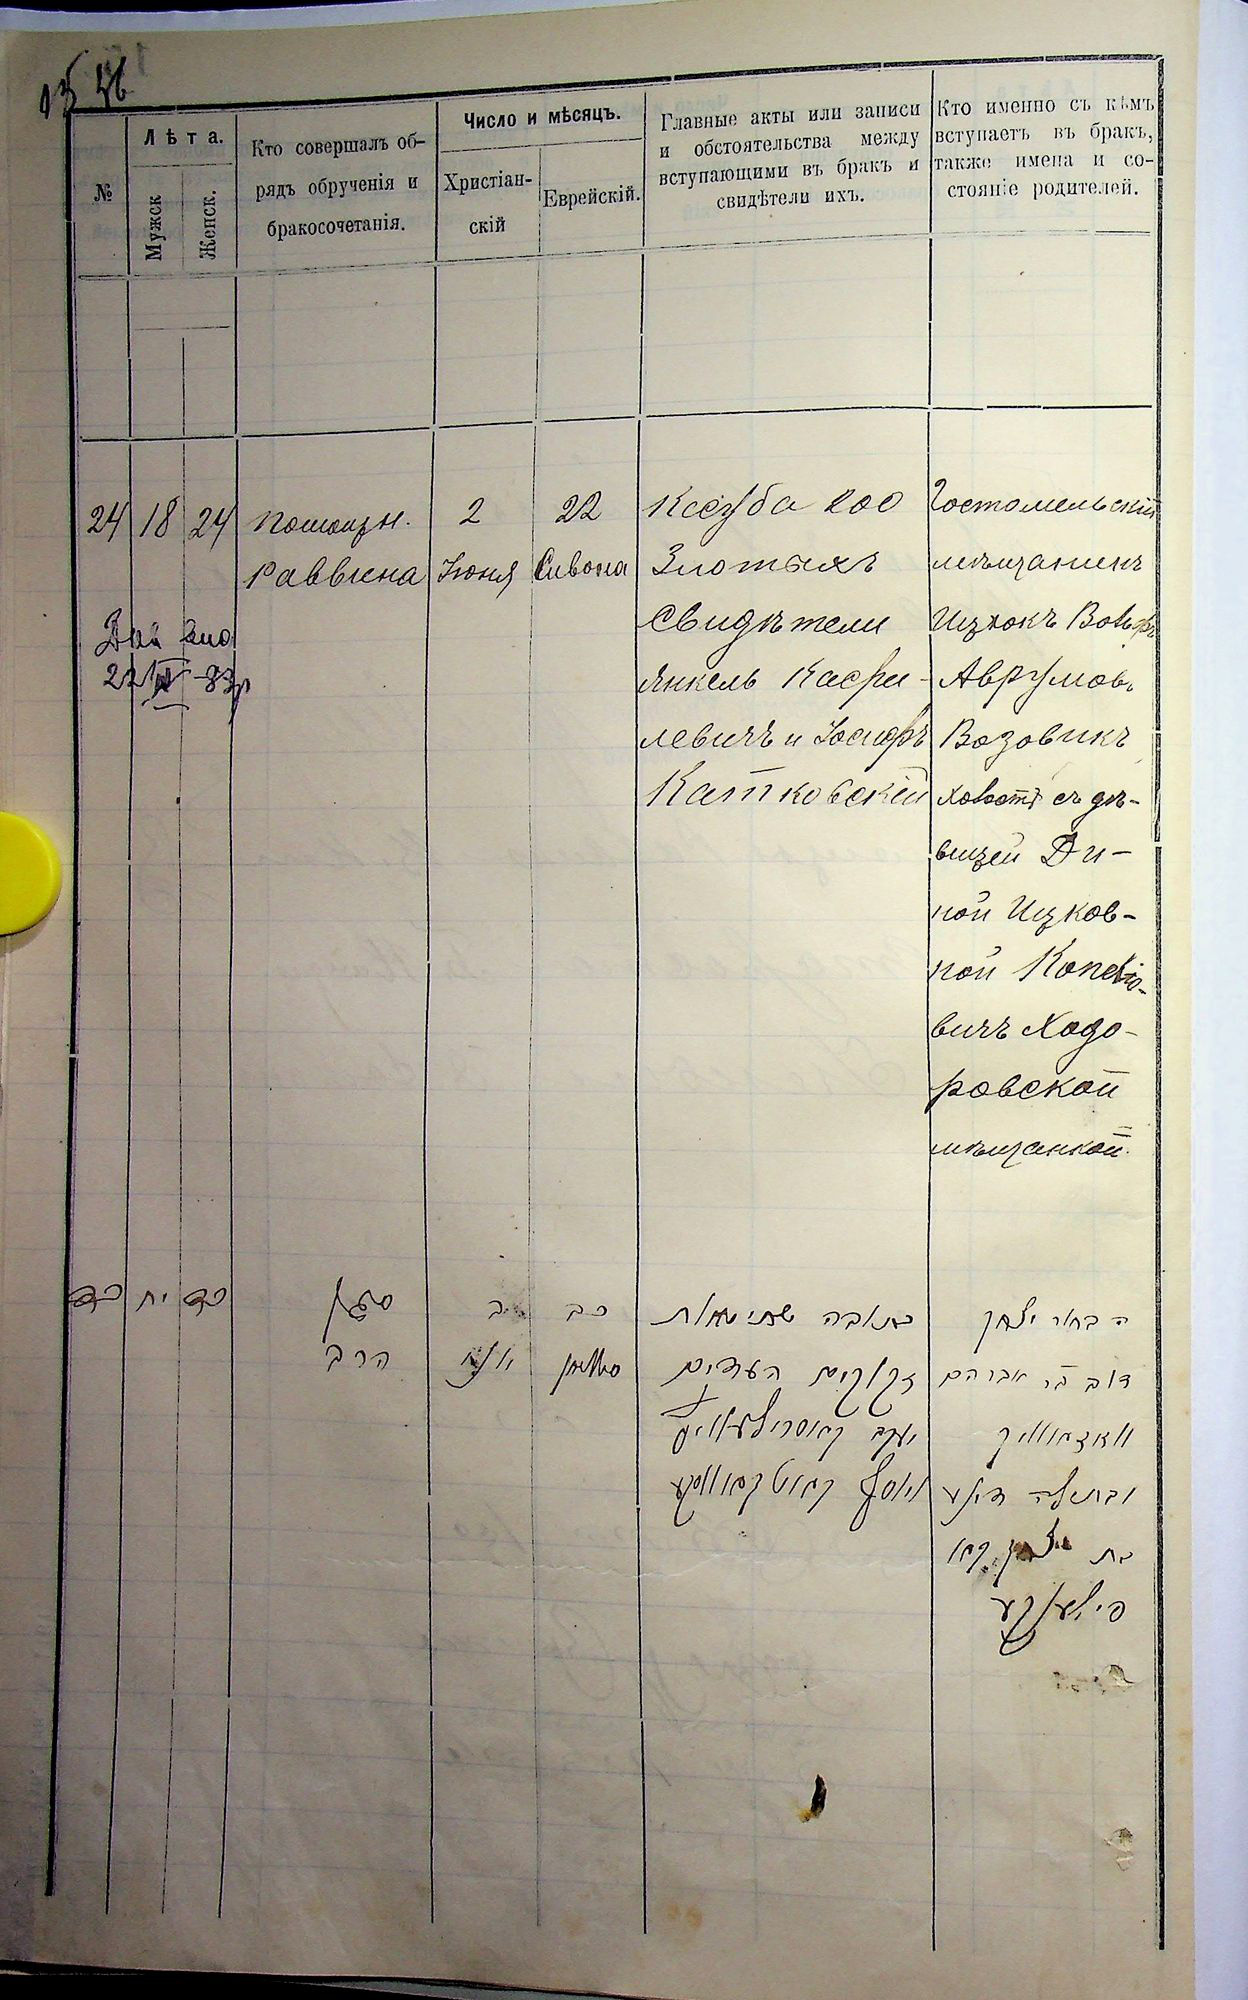 №
Лѣта.
Мужск
Женск.
Кто совершалъ об-
рядъ обрученія и
бракосочетанія.
Число и мѣсяцъ.
Христіан-
скій
Еврейскій.
Главные акты или записи
и обстоятельства между
вступающими въ бракъ и
свидѣтели ихъ.
Кто именно съ кѣмъ
вступаетъ въ бракъ,
также имена и со-
стояніе родителей.
24 18 24
Помощн.
Раввина
2
Іюня
22
Сивона
Ксуба 200
Злотыхъ
Свидѣтели
Янкель Касри-
левичъ и Іосифъ
Катковскій
Гостомельскій
мѣщанинъ
Ицкокъ Вольфъ
Аврумовъ
Возовикъ
холостъ съ дѣ-
вицей Ди-
ной Ицков-
ной
вичъ Ходо-
ровской
мѣщанкой.
כד יח כד
סגן
הרב
ב
יוני
כב
סיון
כתובה שתי מאות
זקוקים העדים
יעקב קאסרילעוויץ
יוסף קאטקאווסקע
ה בחור יצחק
אברהם
וואזאוויק
ובתולה דינע
בת יצחק